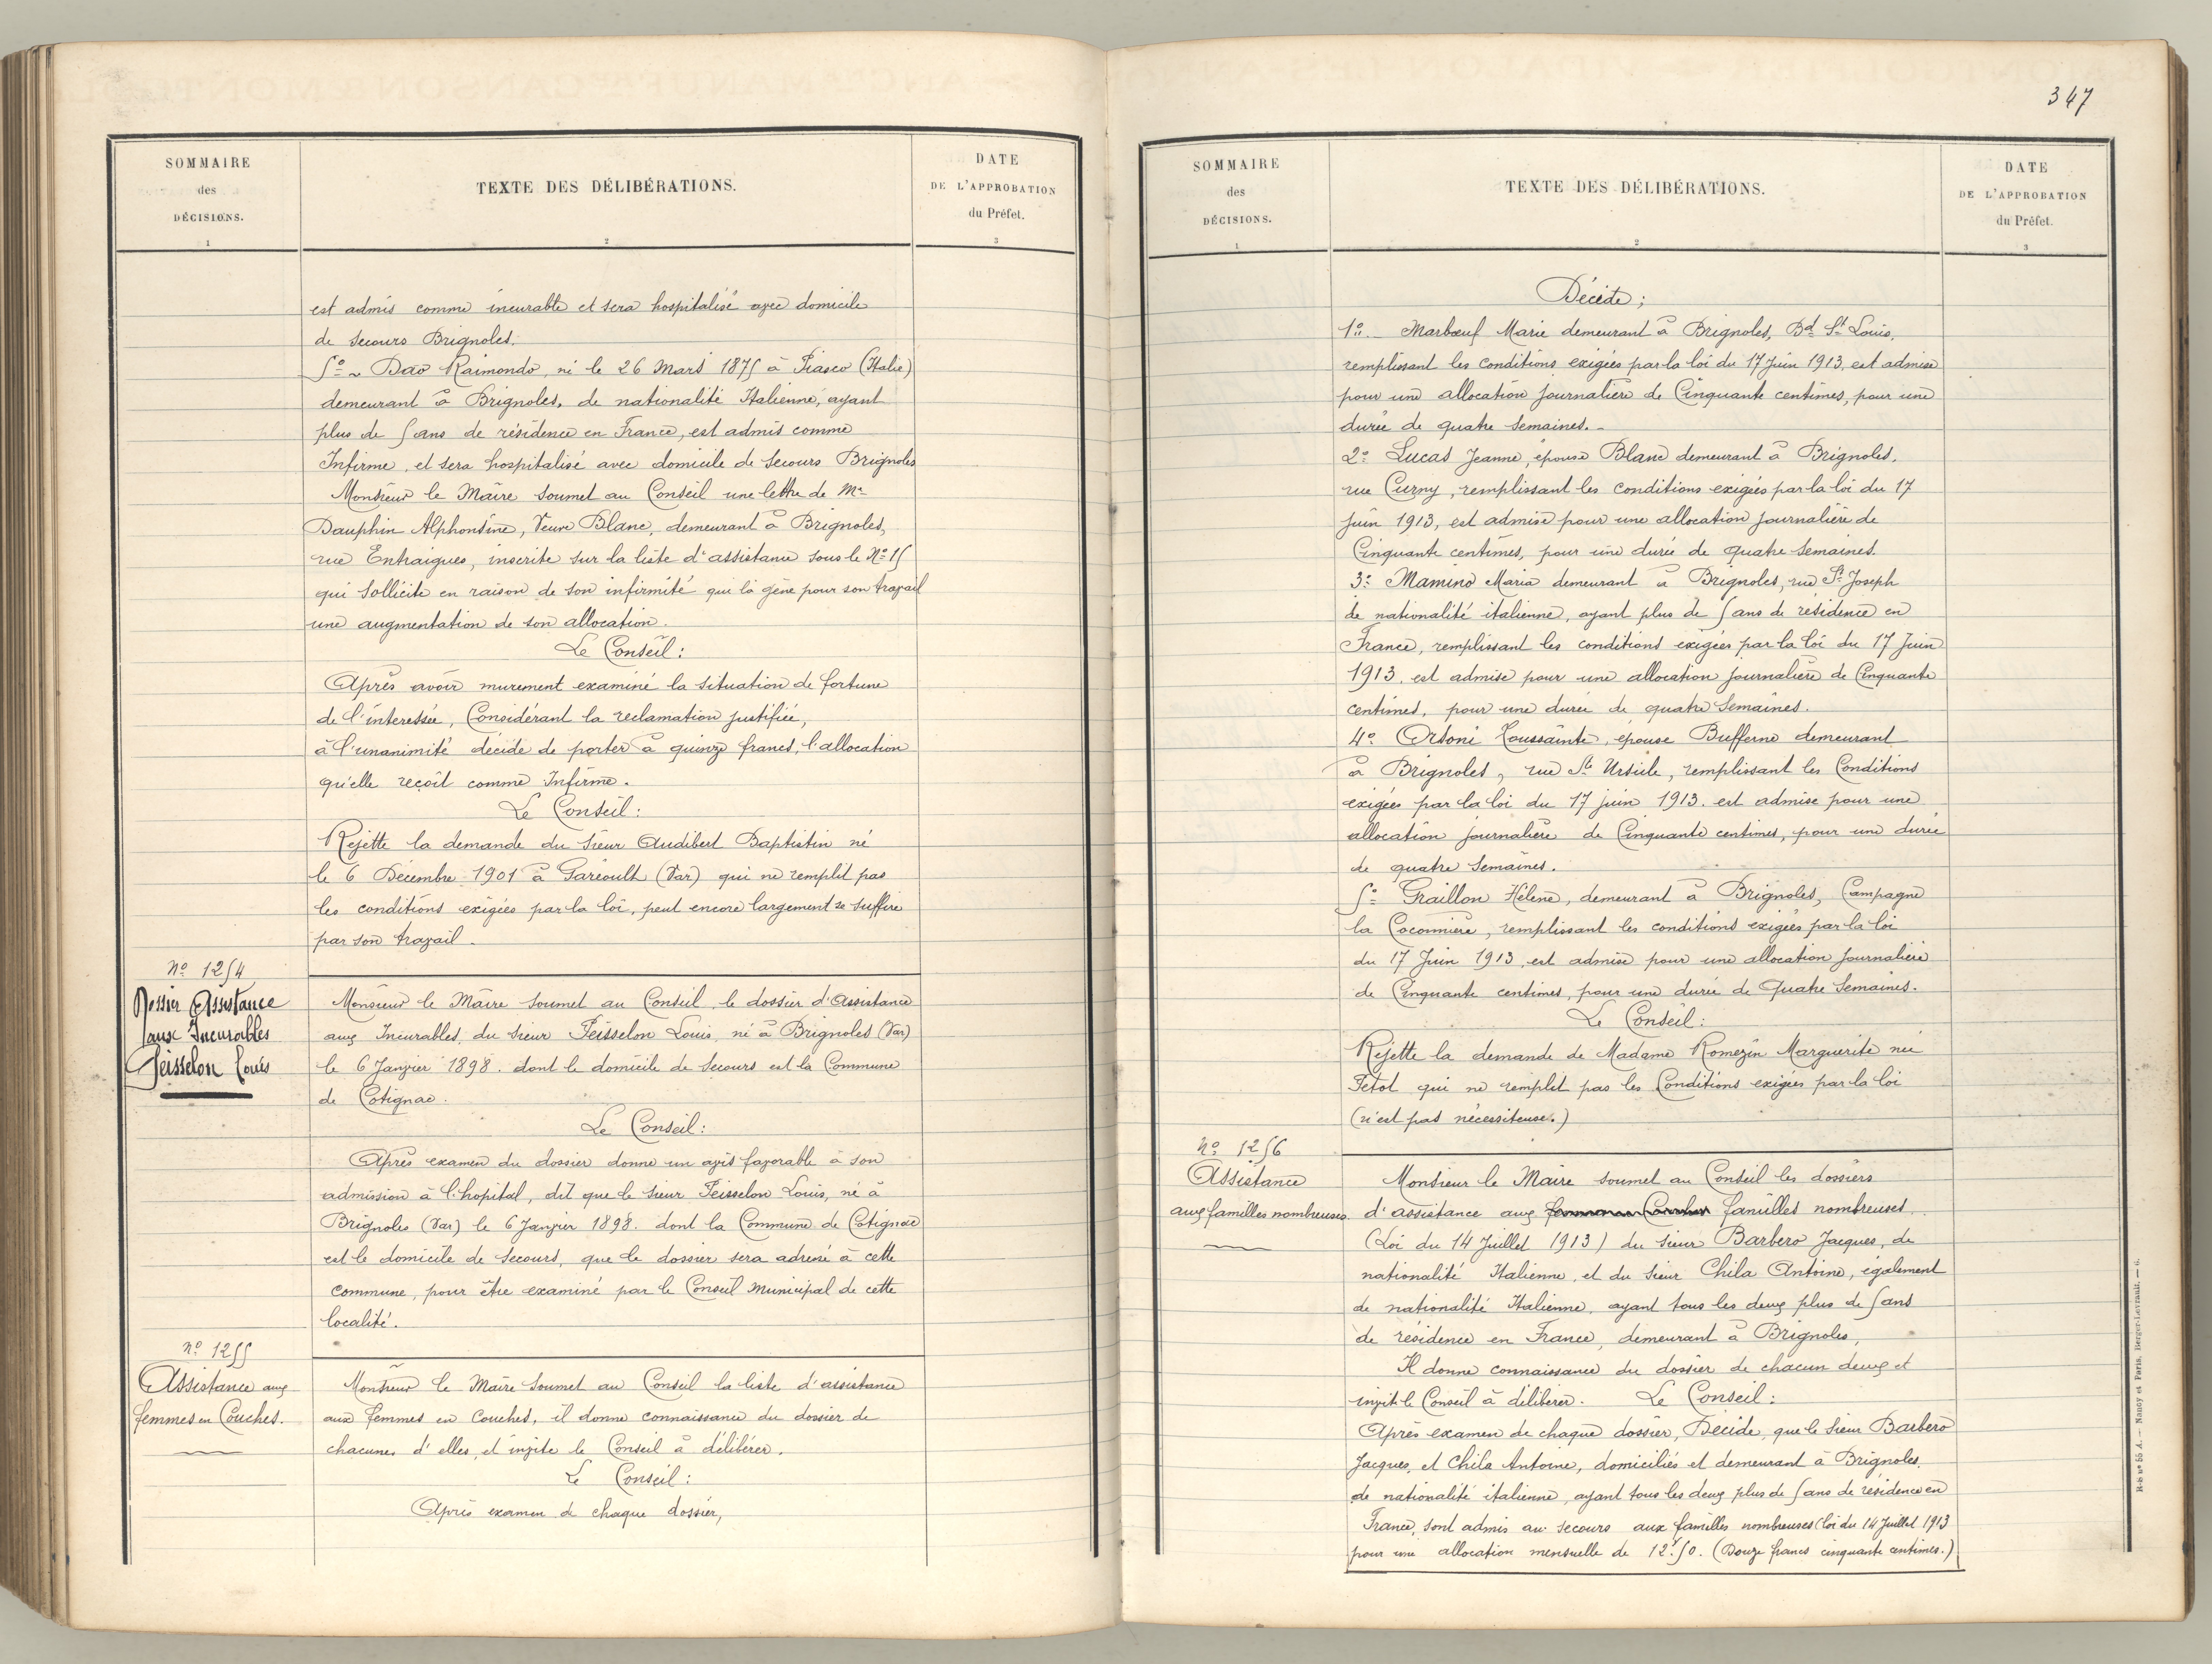 SOMMAIRE
des
DÉCISIONS.
1
TEXTE DES DÉLIBÉRATIONS.
2
DATE
DE L'APPROBATION
du Préfet.
3
est admis comme incurable et sera hospitalisé avec domicile
de secours Brignoles.
5º ~ Dao Raimondo, né le 26 Mars 1875 à Piasco (Italie)
demeurant à Brignoles, de nationalité Italienne, ayant
plus de 5 ans de résidence en France, est admis comme
Infirme, et sera hospitalisé avec domicile de secours Brignoles
Monsieur le Maire soumet au Conseil une lettre de Me
Dauphin Alphonsine, Veuve Blanc, demeurant à Brignoles,
rue Entraigues, inscrite sur la liste d'assistance sous le Nº 15
qui sollicite en raison de son infirmité qui la gène pour son travail
une augmentation de son allocation.
Le Conseil:
Après avoir murement examiné la situation de fortune
de l'interessée, Considérant la reclamation justifiée,
à l'unanimité décide de porter à quinze francs, l'allocation
qu'elle reçoit comme Infirme.
Le Conseil:
Rejette la demande du sieur Audibert Baptistin né
le 6 Décembre 1901 à Garéoult (Var) qui ne remplit pas
les conditions exigées par la loi, peut encore largement se suffire
par son travail.
Nº 1254
Dossier Assistance
aux Incurables
Teisselon Louis
Monsieur le Maire soumet au Conseil le dossier d'Assistance
aux Incurables, du sieur Teisselon Louis, né à Brignoles (Var)
le 6 Janvier 1898. dont le domicile de secours est la Commune
de Cotignac.
Le Conseil:
Après examen du dossier donne un avis favorable à son
admission à l'hopital, dit que le sieur Teisselon Louis, né à
Brignoles (Var) le 6 Janvier 1898. dont la Commune de Cotignac
est le domicile de secours, que le dossier sera adressé à cette
commune, pour être examiné par le Conseil Municipal de cette
localité.
Nº 1255
Assistance aux
femmes en Couches.
Monsieur le Maire soumet au Conseil la liste d'assistance
aux femmes en Couches, il donne connaissance du dossier de
chacunes d'elles, et invite le Conseil à délibérer.
Le Conseil:
Après examen de chaque dossier,
347
SOMMAIRE
des
DÉCISIONS.
1
TEXTE DES DÉLIBÉRATIONS.
2
DATE
DE L'APPROBATION
du Préfet.
3
Décide;
1º.- Marbœuf Marie demeurant à Brignoles, Bd St Louis,
remplissant les conditions exigées par la loi du 17 Juin 1913, est admise
pour une allocation journalière de Cinquante centimes, pour une
durée de quatre semaines.-
2º Lucas Jeanne, épouse Blanc demeurant à Brignoles,
rue Curny, remplissant les conditions exigées par la loi du 17
Juin 1913, est admise pour une allocation journalière de
Cinquante centimes, pour une durée de quatre semaines.
3º Mamino Maria demeurant à Brignoles, rue St Joseph
de nationalité italienne, ayant plus de 5 ans de résidence en
France, remplissant les conditions exigées par la loi du 17 Juin
1913, est admise pour une allocation journalière de Cinquante
centimes, pour une durée de quatre semaines.
4º Orsoni Toussainte, épouse Bufferne demeurant
à Brignoles, rue Ste Ursule, remplissant les Conditions
exigées par la loi du 17 juin 1913. est admise pour une
allocation journalière de Cinquante centimes, pour une durée
de quatre semaines.
5º Graillon Hélène, demeurant à Brignoles, Campagne
la Coconnière, remplissant les conditions exigées par la loi
du 17 Juin 1913, est admise pour une allocation journalière
de Cinquante centimes, pour une durée de Quatre semaines.
Le Conseil:
Rejette la demande de Madame Romezin Marguerite née
Petot qui ne remplit pas les Conditions exigées par la loi
(n'est pas nécessiteuse.)
Nº 1256
Assistance
aux familles nombreuses.
Monsieur le Maire soumet au Conseil les dossiers
d'assistance aux familles nombreuses.
(Loi du 14 Juillet 1913) du sieur Barbero Jacques, de
nationalité Italienne, et du sieur Chila Antoine, également
de nationalité Italienne, ayant tous les deux plus de 5 ans
de résidence en France, demeurant à Brignoles,
Il donne connaissance du dossier de chacun deux et
invite le Conseil à délibérer. Le Conseil:
Après examen de chaque dossier, Décide, que le sieur Barbero
Jacques, et Chila Antoine, domiciliés et demeurant à Brignoles,
de nationalité italienne, ayant tous les deux plus de 5 ans de résidence en
France, sont admis au secours aux familles nombreuses (loi du 14 Juillet 1913
pour une allocation mensuelle de 12f50. (Douze francs cinquante centimes.)
Nancy et Paris, Berger-Levrault. — 6.